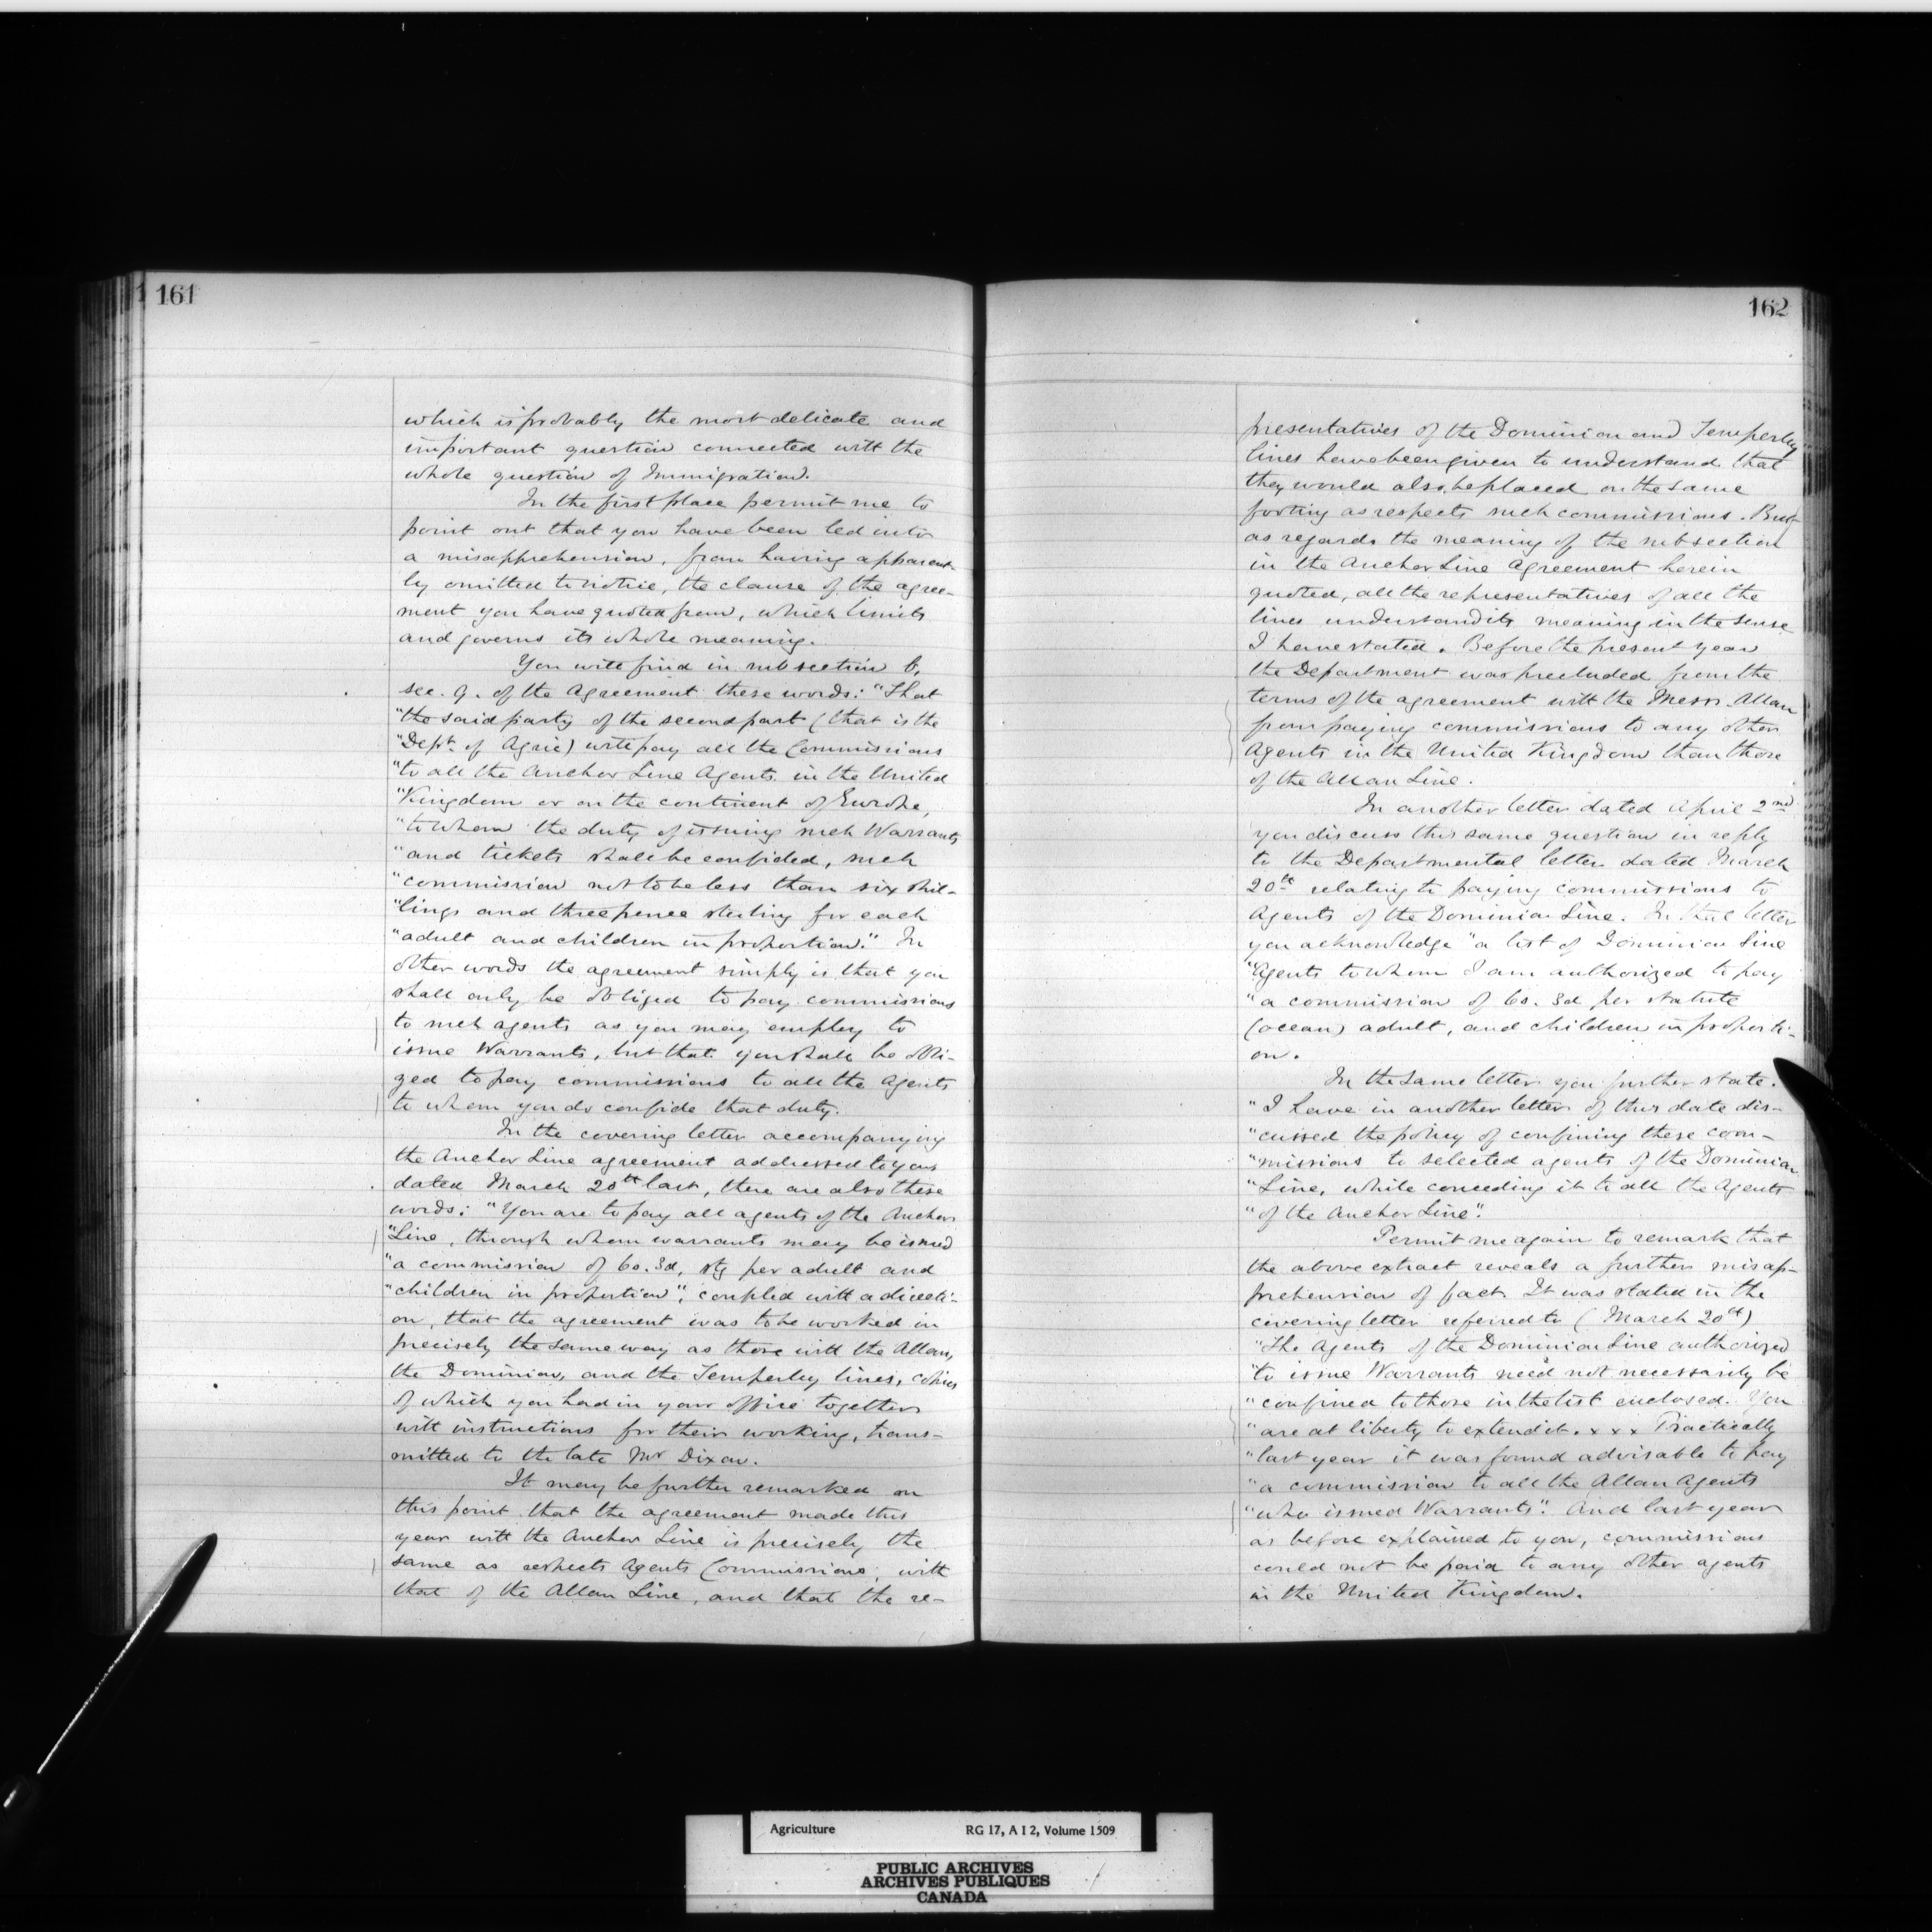 161
which is probably the most delicate and
important question connected with the
whole question of Immigration.
In the first place permit me to
point out that you have been led into
a misapprehension, from having apparent-
ly omitted to notice, the clause of the agree-
ment you have quoted from, which limits
and governs its whole meaning.
You will find in subsection b,
sec. 9. of the Agreement these words: "That
"the said party of the second part (that is the
"Dept. of Agric) will pay all the Commissions
"to all the Anchor Line Agents in the United
"Kingdom or on the continent of Europe,
"to whom the duty of issuing such Warrants
"and tickets shall be confided, such
"commission not to be less than six shil-
"lings and three pence sterling for each
"adult and children in proportion." In
other words the agreement simply is that you
shall only be obliged to pay commissions
to such agents as you may employ to
issue Warrants, but that you shall be obli-
ged to pay commissions to all the Agents
to whom you do confide that duty.
In the covering letter accompanying
the Anchor Line agreement addressed to you
dated March 20th last, there are also these
words: "You are to pay all agents of the Anchor
"Line, through whom warrants may be issued
"a commission of 6s. 3d, stg per adult and
"children in proportion", coupled with a directi-
on, that the agreement was to be worked in
precisely the same way as those with the Allan,
the Dominion, and the Temperley lines, copies
of which you had in your office together
with instructions for their working, trans-
mitted to the late Mr Dixon.
It may be further remarked on
this point that the agreement made this
year with the Anchor Line is precisely the
same as respects Agents Commissions, with
that of the Allan Line, and that the re-
162
presentatives of the Dominion and Temperley
lines have been given to understand that
they would also be placed on the same
footing as respects such commissions. But
as regards the meaning of the subsection
in the Anchor Line Agreement herein
quoted, all the representatives of all the
lines understand its meaning in the sense
I have stated. Before the present year
the Department was precluded from the
terms of the agreement with the Messrs. Allan
from paying commissions to any other
Agents in the United Kingdom than those
of the Allan Line.
In another letter dated April 2nd
you discuss this same question in reply
to the Departmental letter dated March
20th relating to paying commissions to
Agents of the Dominion Line. In that letter
you acknowledge "a list of Dominion Line
"Agents to whom I am authorized to pay
"a commission of 6s. 3d per statute
(ocean) adult, and children in proporti-
on.
In the same letter you further state.
"I have in another letter of this date dis-
"cussed the policy of confining these com-
"missions to selected agents of the Dominion
"Line, while conceding it to all the Agents
"of the Anchor Line".
Permit me again to remark that
the above extract reveals a further misap-
prehension of fact. It was stated in the
covering letter referred to (March 20th)
"The Agents of the Dominion Line authorized
"to issue Warrants need not necessarily be
"confined to those in the list enclosed. You
"are at liberty to extend it. x x x Practically
"last year it was found advisable to pay
"a commission to all the Allan Agents
"who issued Warrants". And last year
as before explained to you, commissions
could not be paid to any other agents
in the United Kingdom.
Agriculture RG 17, A I 2, Volume 1509
PUBLIC ARCHIVES
ARCHIVES PUBLIQUES
CANADA